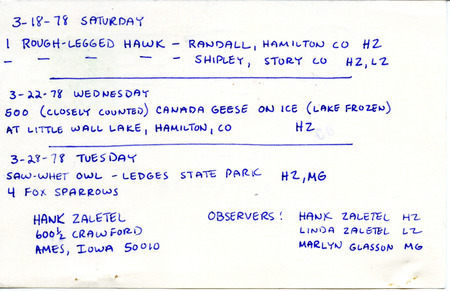 3-18-78 SATURDAY
1 ROUGH-LEGGED HAWK - RANDALL, HAMILTON CO HZ
- - - - - SHIPLEY, STORY CO HZ, LZ
3-22-78 WEDNESDAY
500 (CLOSELY COUNTED) CANADA GEESE ON ICE (LAKE FROZEN)
AT LITTLE WALL LAKE, HAMILTON, CO HZ
3-28-78 TUESDAY
SAW-WHET OWL - LEDGES STATE PARK HZ, MG
4 FOX SPARROWS
HANK ZALETEL OBSERVERS: HANK ZALETEL HZ
600½ CRAWFORD LINDA ZALETEL LZ
AMES, IOWA 50010 MARLYN GLASSON MG